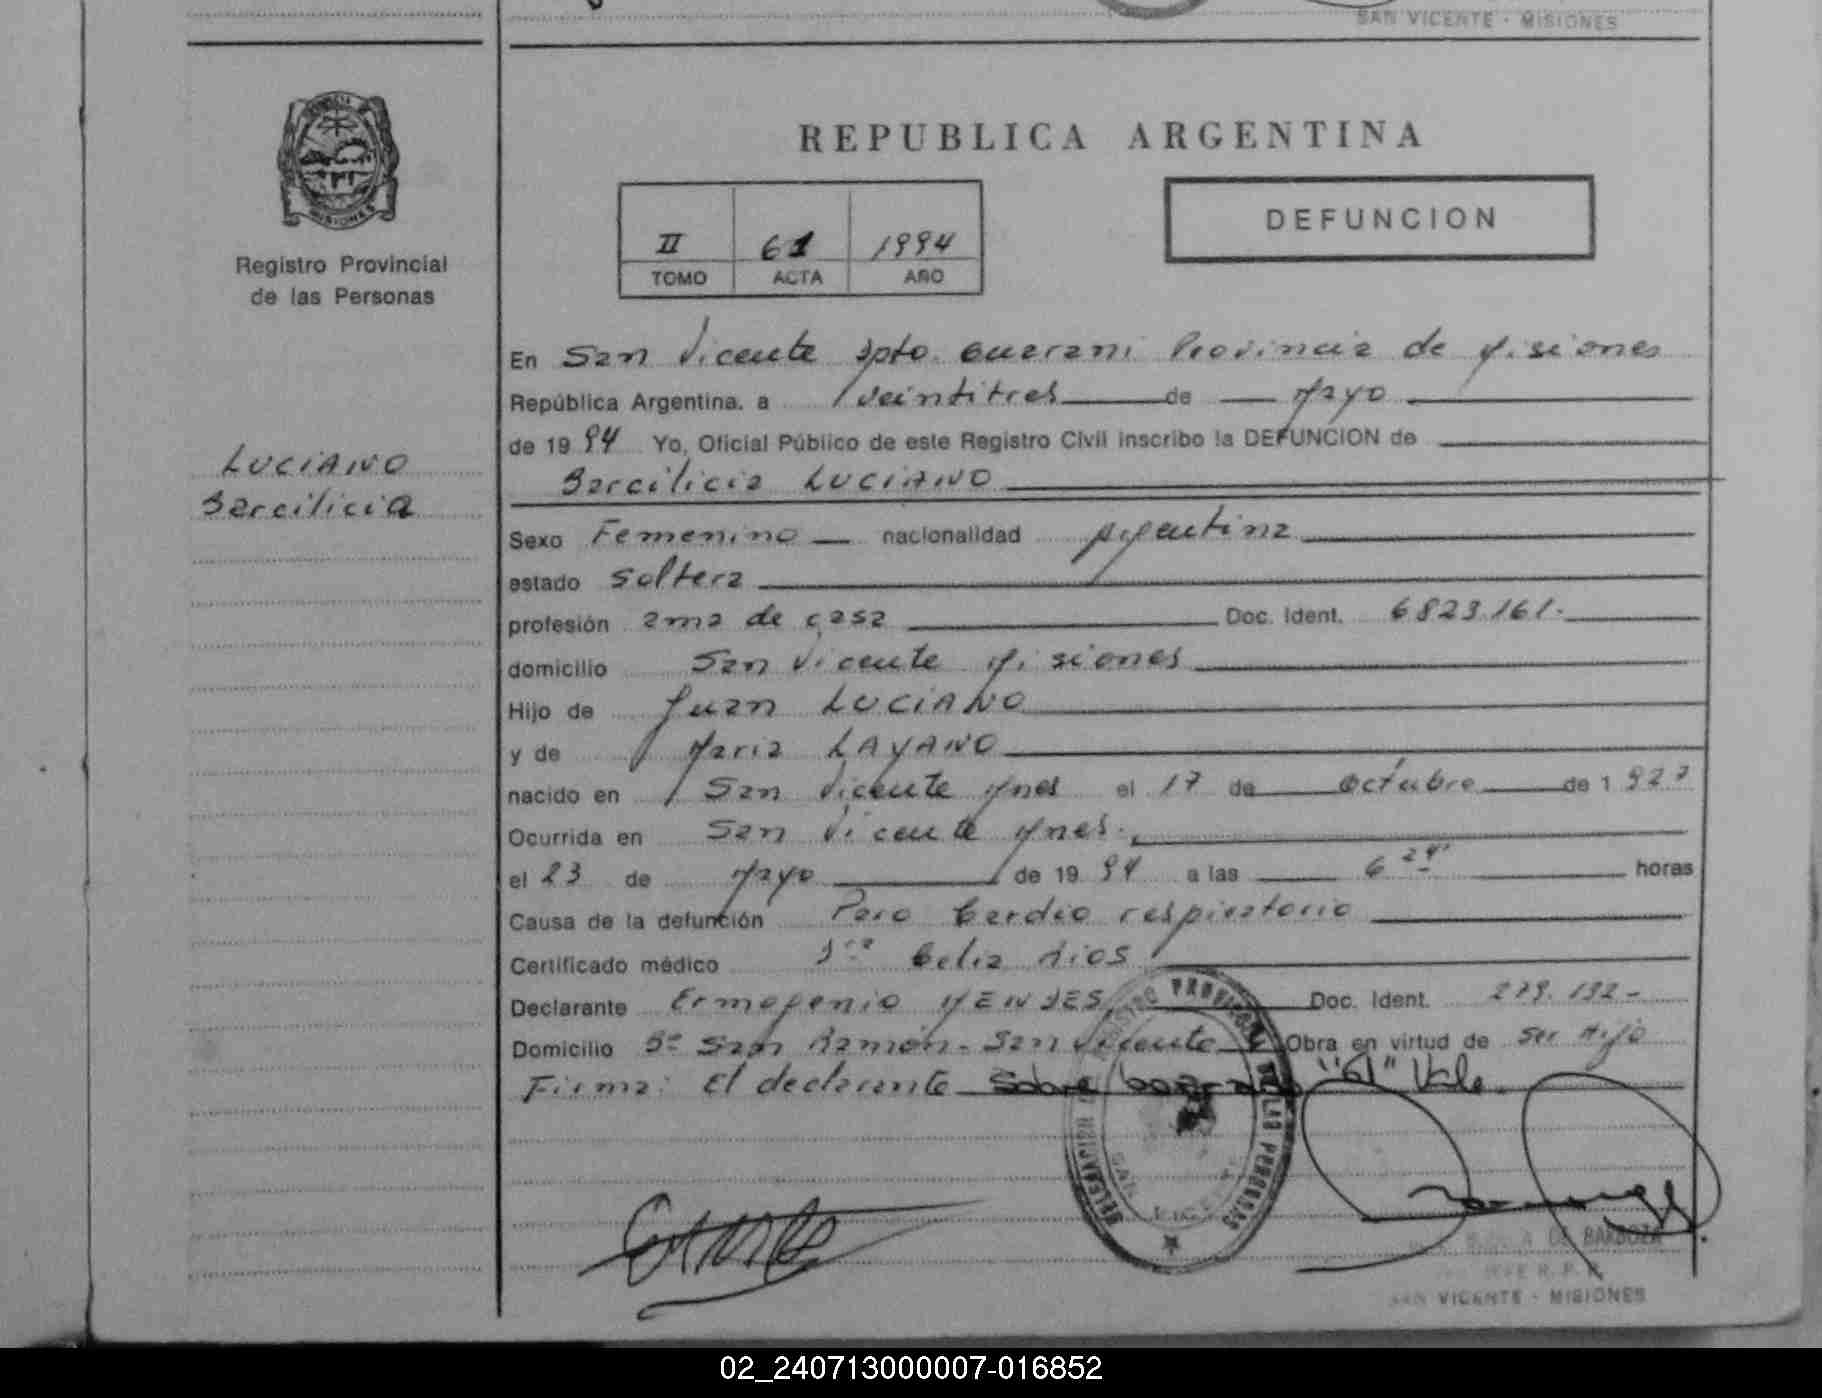 SAN VICENTE - MISIONES
PROVINCIA DE
MISIONES
Registro Provincial
de las Personas
LUCIANO
Barcilicia
REPUBLICA ARGENTINA
II 61 1994
TOMO ACTA AÑO
DEFUNCION
En San Vicente Dpto. Guarani Provincia de Misiones
República Argentina. a veintitres de Mayo
de 1994 Yo, Oficial Público de este Registro Civil inscribo la DEFUNCION de
Barcilicia LUCIANO
Sexo Femenino nacionalidad Argentina
estado Soltera
profesión ama de casa Doc. Ident. 6823.161.
domicilio San Vicente Misiones
Hijo de Juan LUCIANO
y de Maria LAYANO
nacido en San Vicente Mnes el 17 de Octubre de 1927
Ocurrida en San Vicente Mnes.
el 23 de Mayo de 1994 a las 6 24' horas
Causa de la defunción Paro Cardio respiratorio
Certificado médico Dra Celia Rios
Declarante Ermogenio MENDES Doc. Ident. 279.192-
Domicilio Bº San Ramón - San Vicente Obra en virtud de ser Hijo
Firma: El declarante Sobre "61" Vale
DELEGACION REGISTRO PROVINCIAL DE LAS PERSONAS
SAN VICENTE
DE BARBOZA
JEFE R. P. P.
SAN VICENTE - MISIONES
02_240713000007-016852